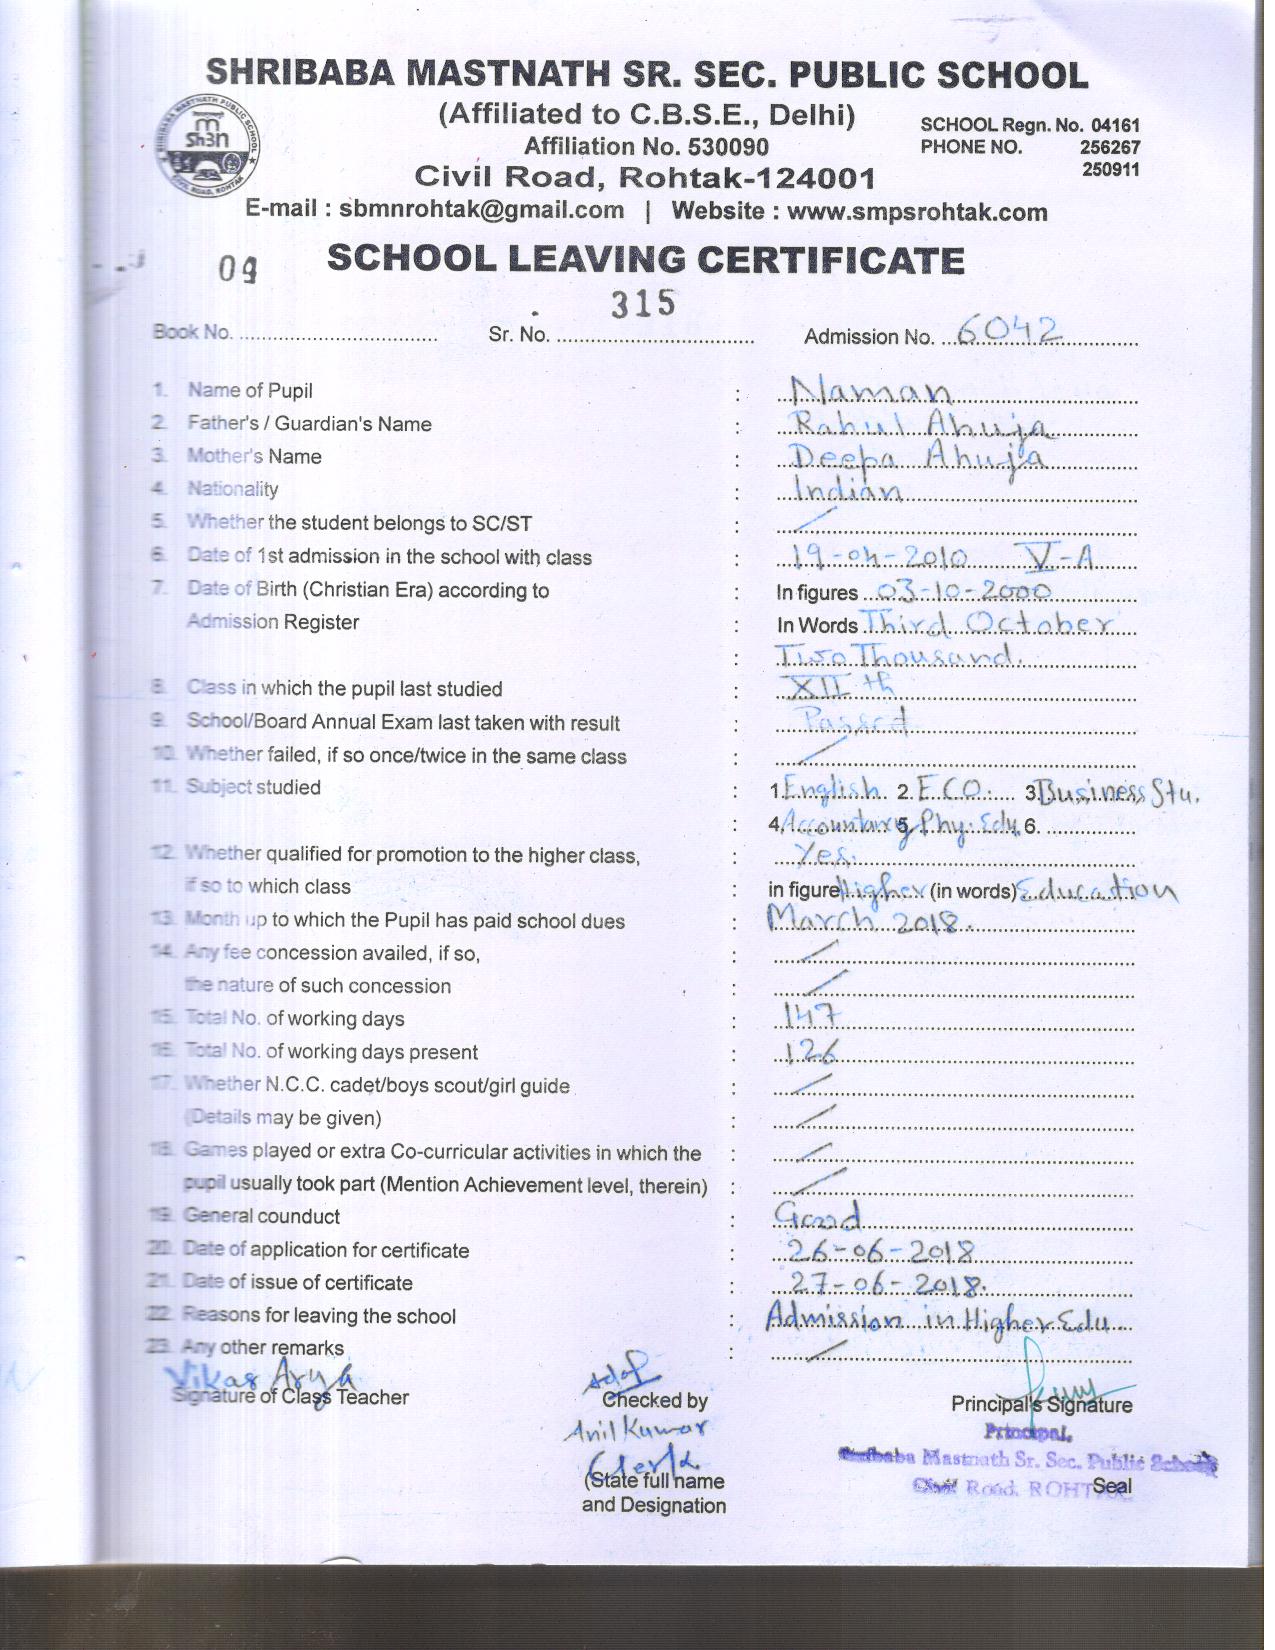 SHRIBABA MASTNATH SR. SEC. PUBLIC SCHOOL
(Affiliated to C.B.S.E., Delhi)
Affiliation No. 530090
SCHOOL Regn. No. 04161
PHONE NO. 256267
250911
Civil Road, Rohtak-124001
E-mail : sbmnrohtak@gmail.com | Website : www.smpsrohtak.com
SCHOOL LEAVING CERTIFICATE
09
315
Book No. Sr. No. Admission No. 6042
1. Name of Pupil : Naman
2. Father's / Guardian's Name : Rahul Ahuja
3. Mother's Name : Deepa Ahuja
4. Nationality : Indian
5. Whether the student belongs to SC/ST : /
6. Date of 1st admission in the school with class : 19-04-2010 V-A
7. Date of Birth (Christian Era) according to : In figures 03-10-2000
Admission Register : In Words Third October
: Two Thousand.
8. Class in which the pupil last studied : XII th
9. School/Board Annual Exam last taken with result : Passed
10. Whether failed, if so once/twice in the same class : /
11. Subject studied : 1. English 2. ECO. 3. Business Stu.
: 4. Accountancy 5. Phy. Edu. 6.
12. Whether qualified for promotion to the higher class, : Yes.
if so to which class : in figure Higher (in words) Education
13. Month up to which the Pupil has paid school dues : March 2018.
14. Any fee concession availed, if so, : /
the nature of such concession : /
15. Total No. of working days : 147
16. Total No. of working days present : 126
17. Whether N.C.C. cadet/boys scout/girl guide : /
(Details may be given) : /
18. Games played or extra Co-curricular activities in which the : /
pupil usually took part (Mention Achievement level, therein) : /
19. General counduct : Good
20. Date of application for certificate : 26-06-2018
21. Date of issue of certificate : 27-06-2018.
22. Reasons for leaving the school : Admission in Higher Edu
23. Any other remarks : /
Vikas Arya
Signature of Class Teacher Checked by Principal's Signature
Anil Kumar
Clerk
(State full name
and Designation
Principal,
Shribaba Mastnath Sr. Sec. Public School
Civil Road, ROHTAK
Seal